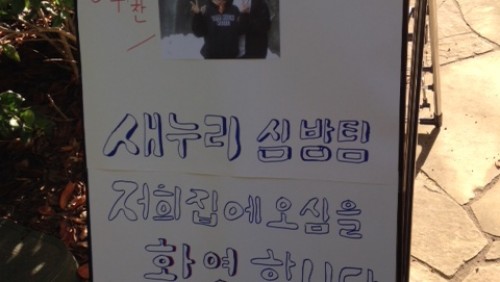 새누리 심방팀
저희집에 오심을
환영합니다